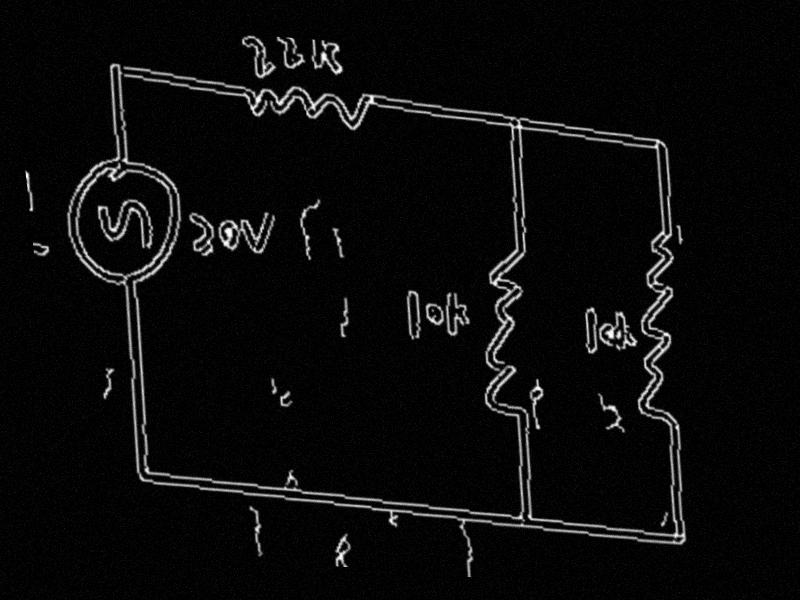 22K
20V
10k
10k